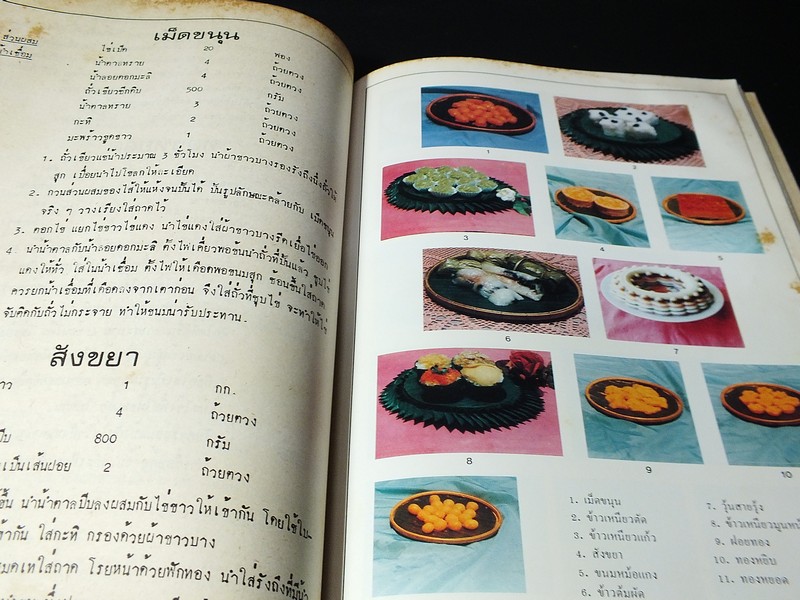 เม็ดขนุน
ส่วนผสม ไข่เป็ด 20 ฟอง
น้ำเชื่อม น้ำตาลทราย 4 ถ้วยตวง
น้ำลอยดอกมะลิ 4 ถ้วยตวง
ถั่วเขียวซีกดิบ 500 กรัม
น้ำตาลทราย 3 ถ้วยตวง
กะทิ 2 ถ้วยตวง
มะพร้าวขูดขาว 1 ถ้วยตวง
1. ถั่วเขียวแช่น้ำประมาณ 3 ชั่วโมง นำผ้าขาวบางรองรังถึงนึ่งถั่วให้
สุก เปื่อยนำไปโขลกให้ละเอียด
2. กวนส่วนผสมของไส้ให้แห้งจนปั้นได้ ปั้นรูปลักษณะคล้ายกับ เม็ดขนุน
จริง ๆ วางเรียงใส่ถาดไว้
3. ตอกไข่ แยกไข่ขาวไข่แดง นำไข่แดงใส่ผ้าขาวบางรีดเยื่อไข่ออก
4. นำน้ำตาลกับน้ำลอยดอกมะลิ ตั้งไฟเคี่ยวพอข้นนำถั่วที่ปั้นแล้ว ชุบไข่
แดงให้ทั่ว ใส่ในน้ำเชื่อม ตั้งไฟให้เดือดพอขนมสุก ช้อนขึ้นใส่ถาด
ควรยกน้ำเชื่อมที่เดือดลงจากเตาก่อน จึงใส่ถั่วที่ชุบไข่ จะทำให้ไข่
จับติดกับถั่วไม่กระจาย ทำให้ขนมน่ารับประทาน.
สังขยา
1 กก.
4 ถ้วยตวง
800 กรัม
เป็นเส้นฝอย 2 ถ้วยตวง
นำน้ำตาลปีบลงผสมกับไข่ขาวให้เข้ากัน โดยใช้ใบ-
เข้ากัน ใส่กะทิ กรองด้วยผ้าขาวบาง
เทใส่ถาด โรยหน้าด้วยฟักทอง นำใส่รังถึงที่มีน้ำ
1
2
3
4
5
6
7
8
9
10
1. เม็ดขนุน
2. ข้าวเหนียวตัด
3. ข้าวเหนียวแก้ว
4. สังขยา
5. ขนมหม้อแกง
6. ข้าวต้มผัด
7. วุ้นสายรุ้ง
8. ข้าวเหนียวมูนหน้
9. ฝอยทอง
10. ทองหยิบ
11. ทองหยอด